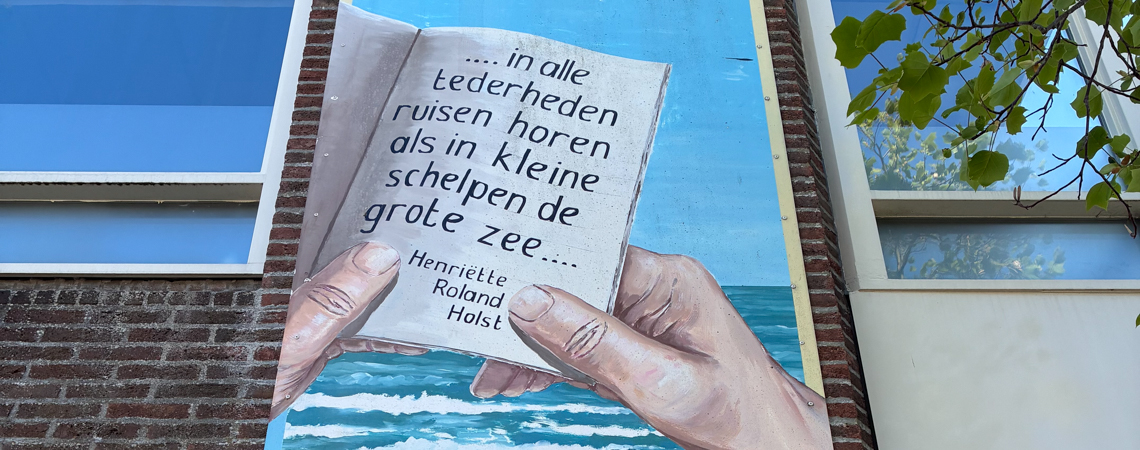 .... in alle
tederheden
ruisen horen
als in kleine
schelpen de
grote zee....
Henriëtte
Roland
Holst